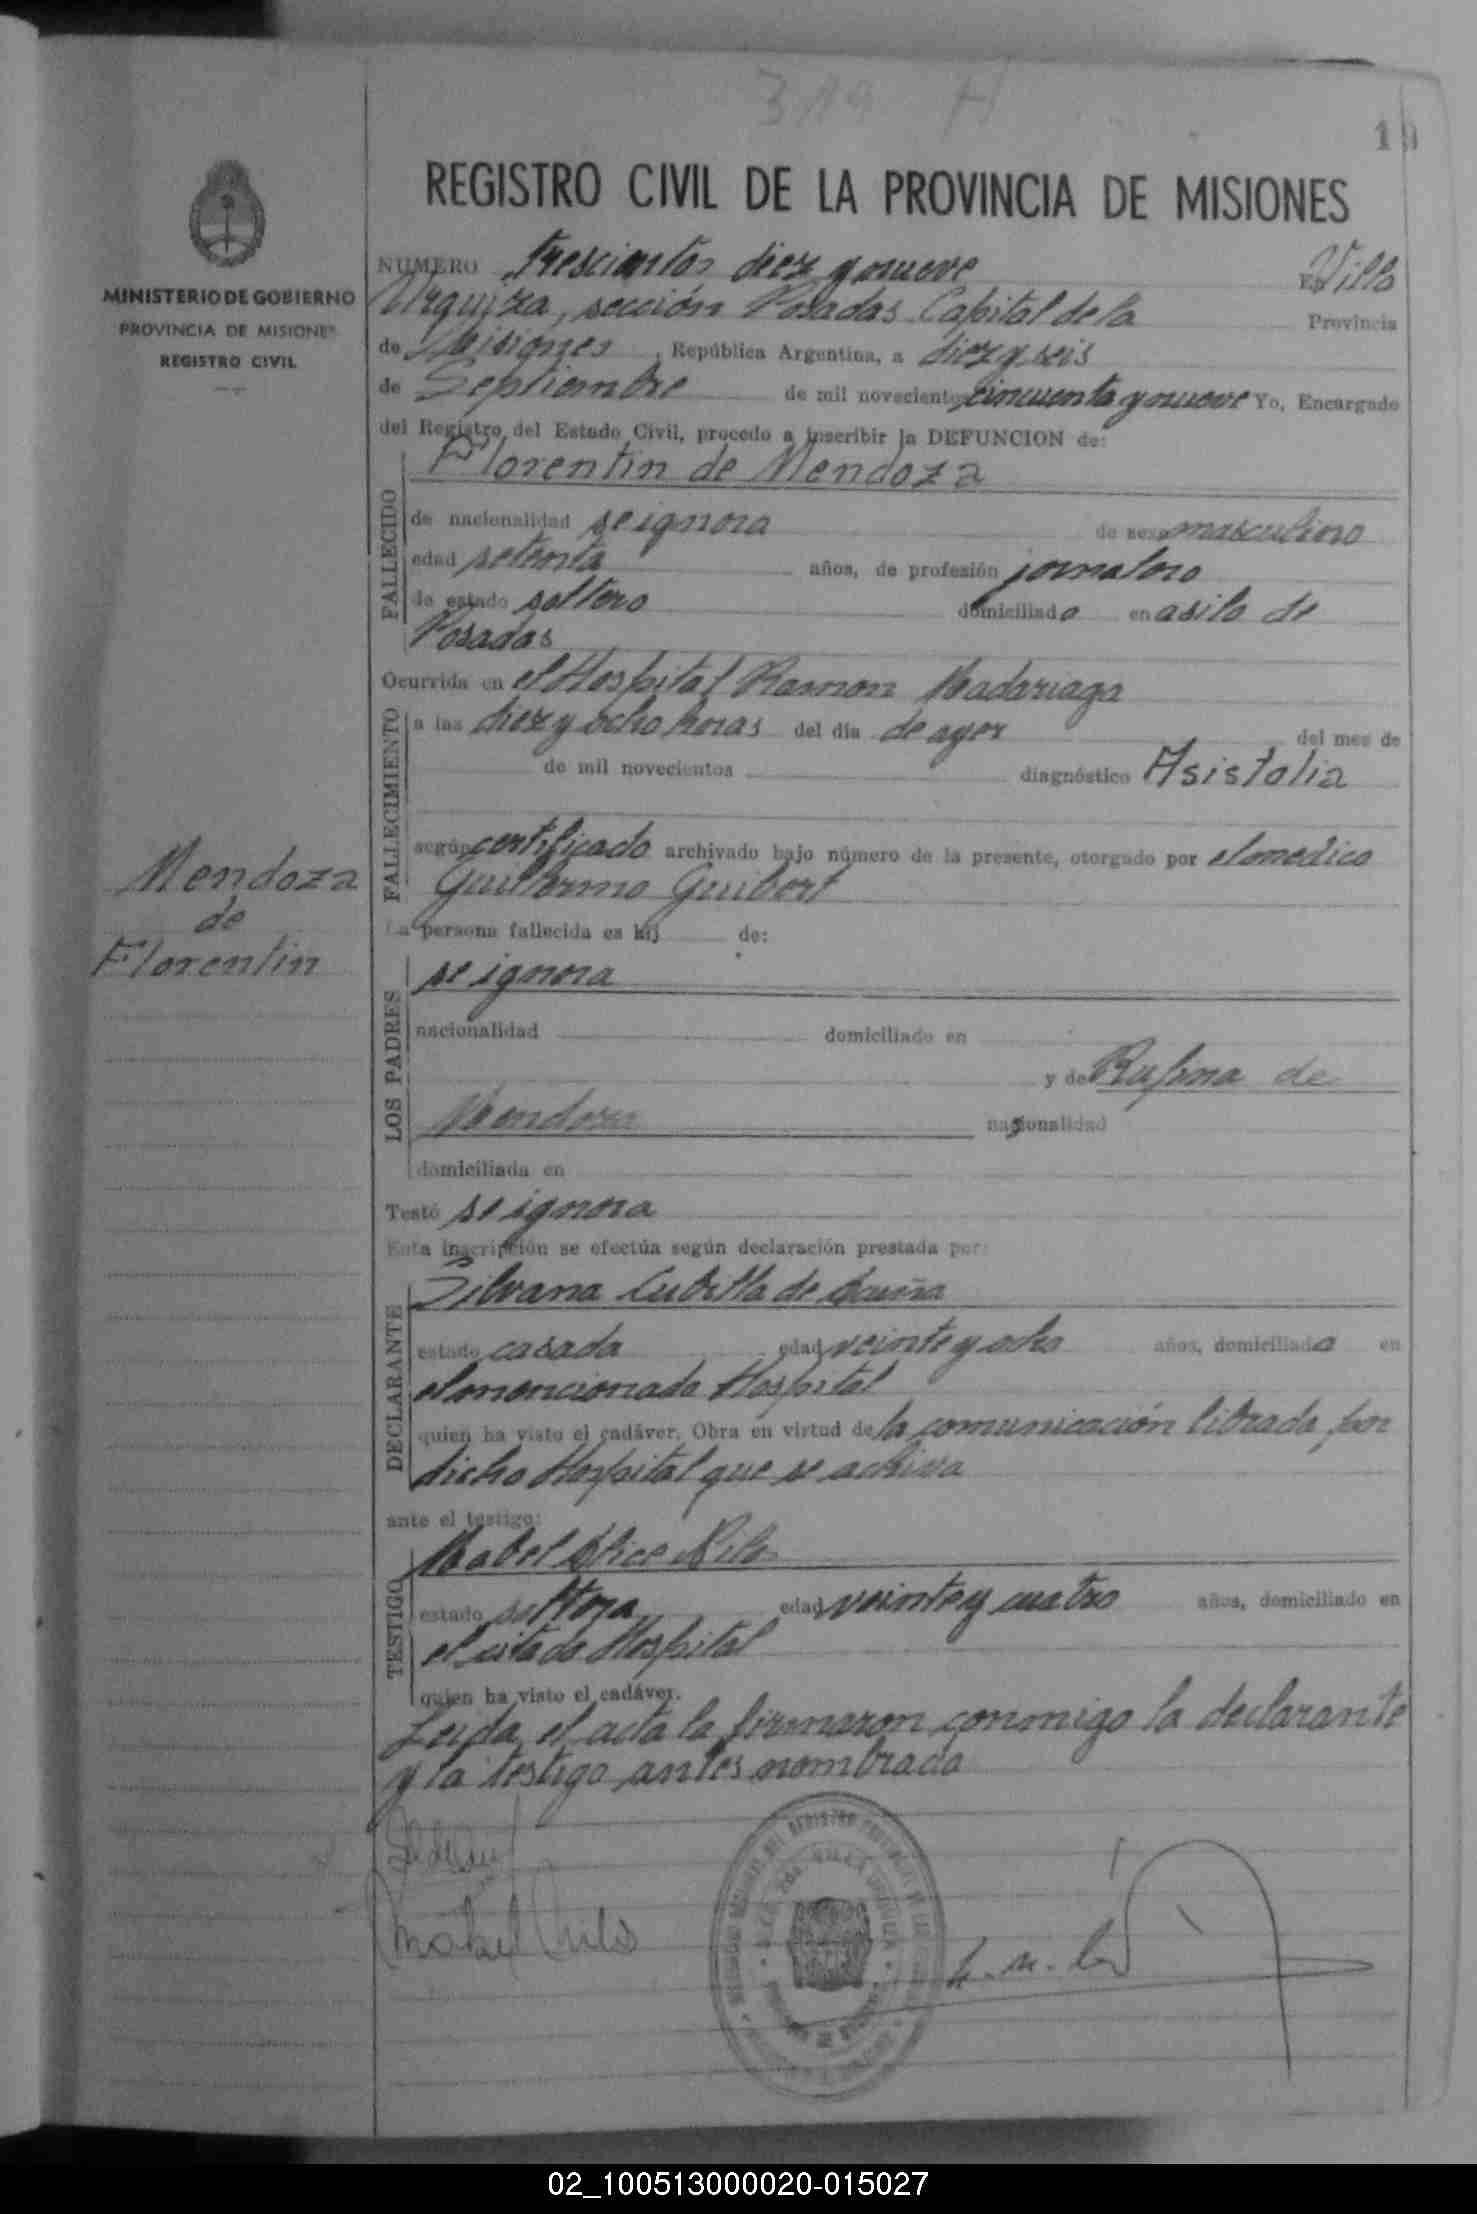 319 H
19
REGISTRO CIVIL DE LA PROVINCIA DE MISIONES
MINISTERIO DE GOBIERNO
PROVINCIA DE MISIONES
REGISTRO CIVIL
NUMERO trescientos diez y nueve En Villa
Urquiza, sección Posadas Capital de la Provincia
de Misiones, República Argentina, a diez y seis
de Septiembre de mil novecientos cincuenta y nueve Yo, Encargado
del Registro del Estado Civil, procedo a inscribir la DEFUNCION de:
Florentin de Mendoza
FALLECIDO
de nacionalidad se ignora de sexo masculino
edad setenta años, de profesión jornalero
de estado soltero domiciliado en asilo de
Posadas
Ocurrida en el Hospital Ramon Madariaga
FALLECIMIENTO
a las diez y ocho horas del día de ayer del mes de
de mil novecientos diagnóstico Asistolia
según certificado archivado bajo número de la presente, otorgado por el medico
Guillermo Guibert
Mendoza
de
Florentin
La persona fallecida es hij de:
LOS PADRES
se ignora
nacionalidad domiciliado en
y de Rufina de
Mendoza nacionalidad
domiciliada en
Testó se ignora
Esta inscripción se efectúa según declaración prestada por:
DECLARANTE
Silvana Cubilla de
estado casada edad veinte y ocho años, domiciliada en
el mencionado Hospital
quien ha visto el cadáver. Obra en virtud de la comunicación librada por
dicho Hospital que se achiva
ante el testigo:
TESTIGO
Mabel Alice Nilo
estado soltera edad veinte y cuatro años, domiciliado en
el citado Hospital
quien ha visto el cadáver.
Leida el acta la firmaron conmigo la declarante
y la testigo antes nombrada
Mabel
VILLA URQUIZA
02_100513000020-015027